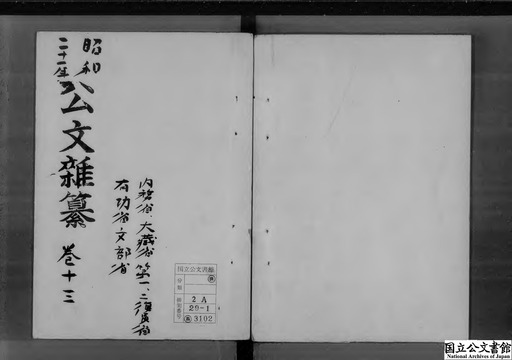 昭和
二十一年
公文雑纂 巻十三
内務省、大蔵省、第一、二復員省
文部省
国立公文書館
分類
排架番号
2A
29-1
3102
国立公文書館
National Archives of Japan